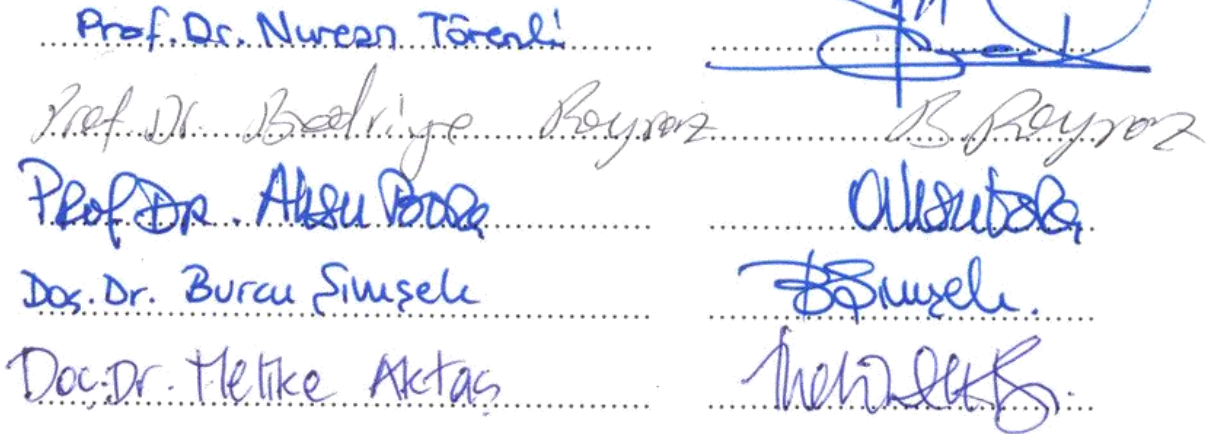 Prof. Dr. Nurcan Törenli
Prof. Dr. Bedriye Poyraz B. Poyraz
Prof. Dr. Aksu Bora Aksu Bora
Doç. Dr. Burcu Şimşek BŞimşek.
Doç. Dr. Melike Aktaş